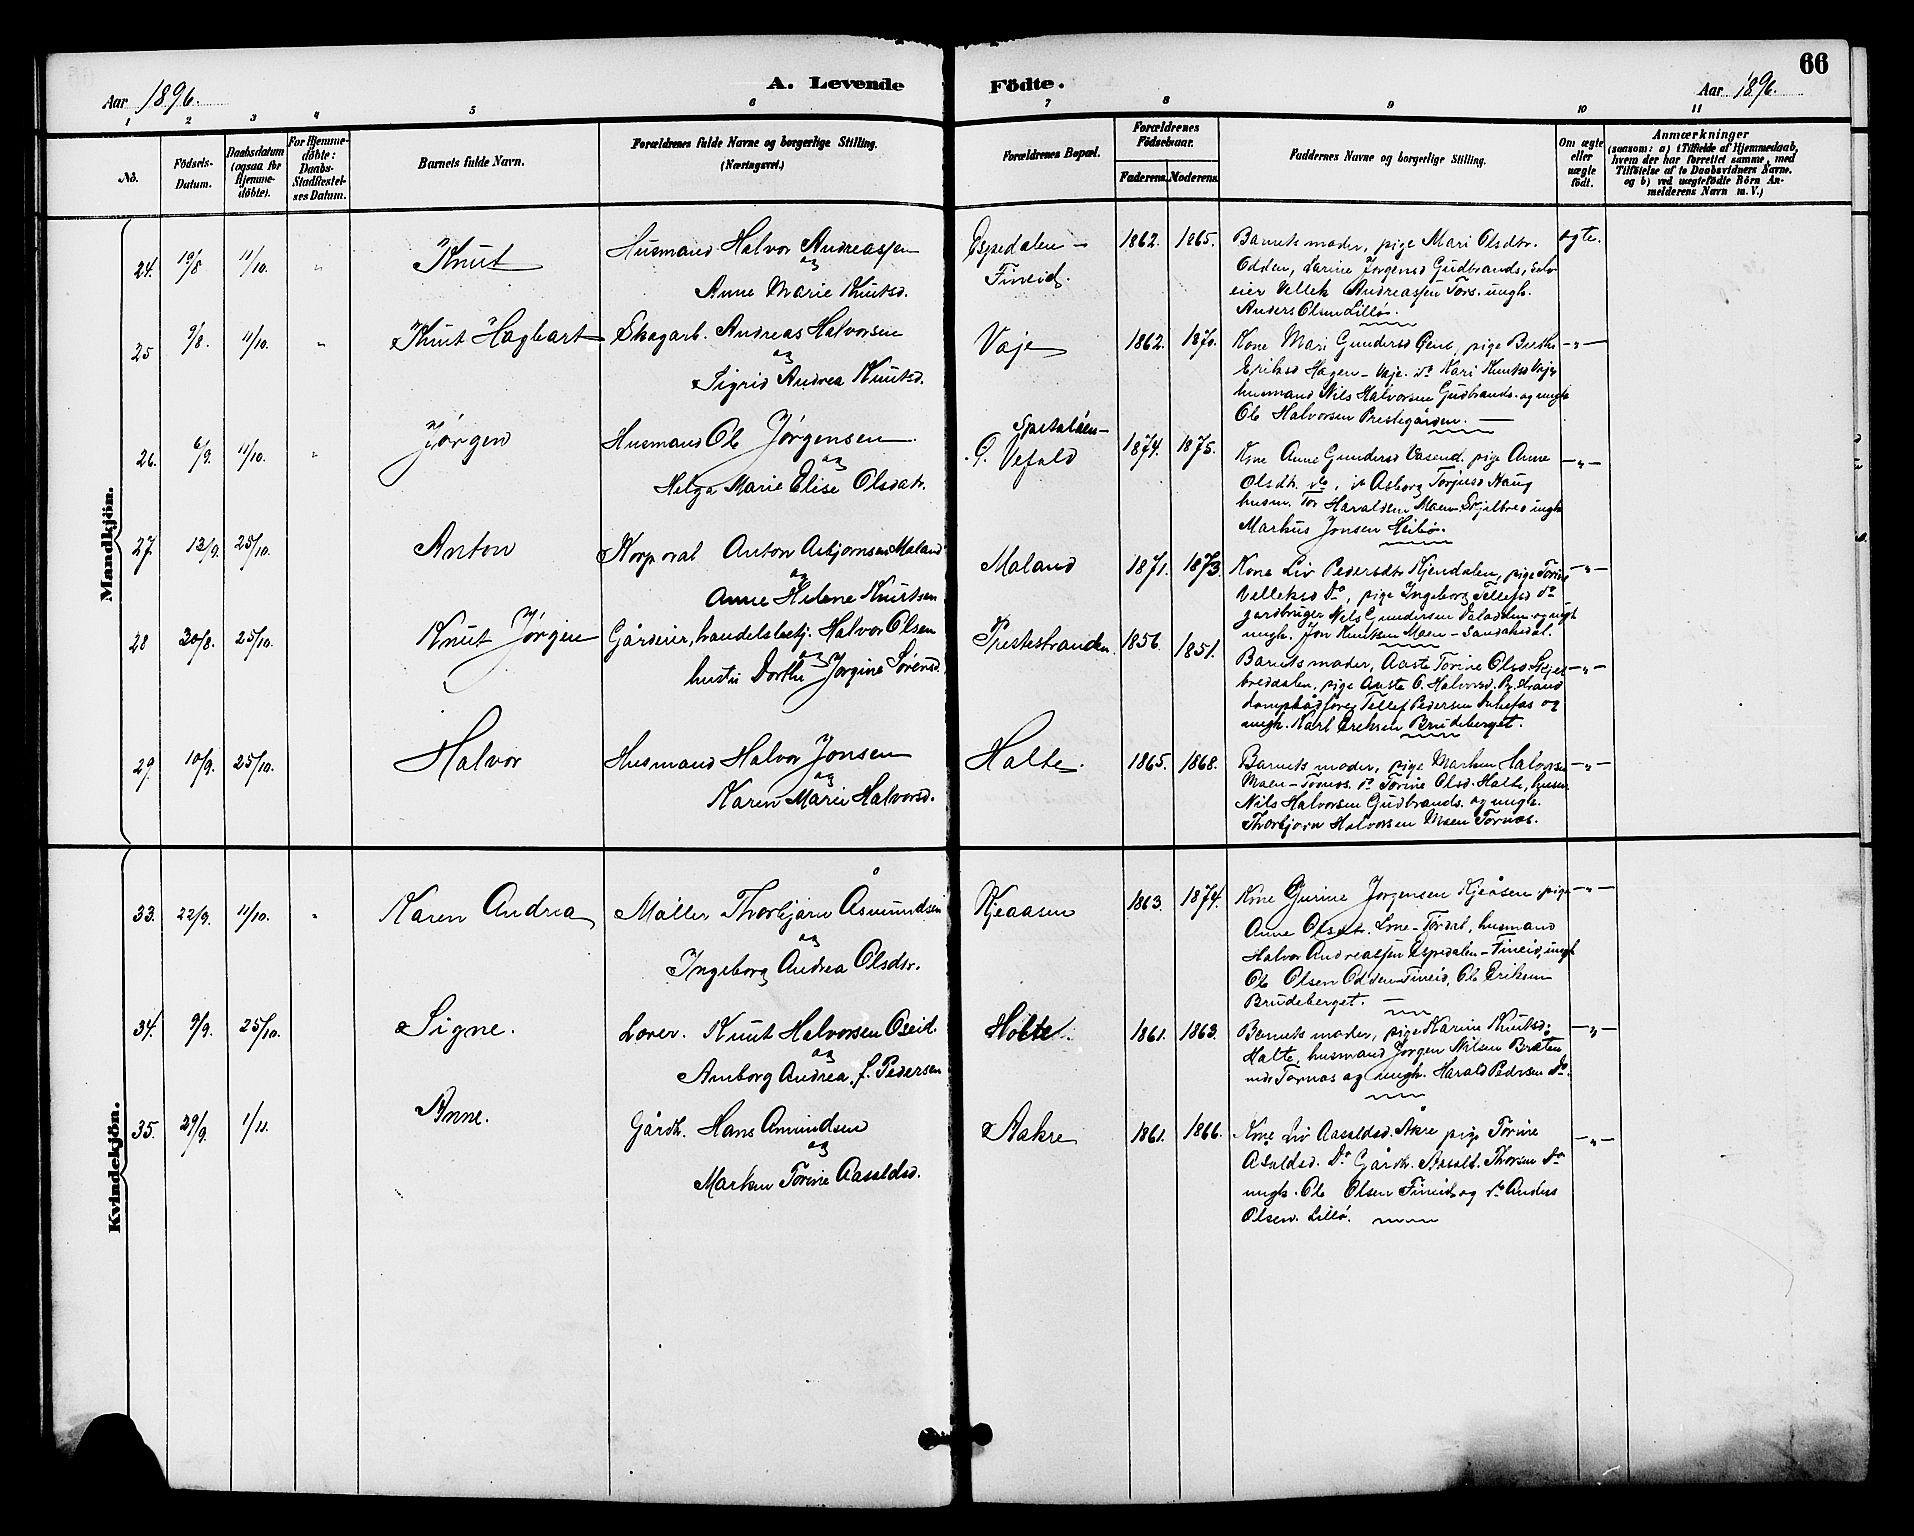 66
Aar 1896. A. Levende Födte. Aar 1896.
1 2 3 4 5 6 7 8 9 10 11
No.
Födsels-Datum.
Daabsdatum (ogsaa for Hjemme-döbte).
For Hjemme-döbte: Daabs-Stadfæstel-ses Datum.
Barnets fulde Navn.
Forældrenes fulde Navne og borgerlige Stilling.
(Næringsvei.)
Forældrenes Bopæl.
Forældrenes Födselsaar.
Faderens. Moderens.
Faddernes Navne og borgerlige Stilling.
Om ægte eller uægte födt.
Anmærkninger
(saasom: a) i Tilfælde af Hjemmedaab,
hvem der har forrettet samme, med
Tilföielse af to Daabsvidners Navne,
og b) ved uægtefödte Börn An-
melderens Navn m. V.)
Mandkjön.
24. 10/8 11/10. " Knut Husmand Halvor Andreassen
og
Anne Marie Knutsd.
Espedalen -
Fineid.
1862. 1865.
Barnets moder, pige Mari Olsdtr.
Odden, Karine Jørgensd Gudbrands, selv
eier Vellek Andreassen Tors. ungk.
Anders Olsen Lillø.
ægte.
25 9/8. 11/10. " Knut Hagbart Skogarb. Andreas Halvorsen
og
Sigrid Andrea Knutsd.
Vaje 1862. 1870.
Kone Mari Gundersd , pige Berthe
Eriksd Hagen - Vaje. do Kari Knutsd Vaje
husmand Nils Halvorsen Gudbrands. og ungk
Ole Halvorsen Prestegården.
- " -
26. 6/9. 11/10. " Jørgen Husmand Ole Jørgensen
og
Helga Marie Elise Olsdatr.
Spitaløen -
Ø. Vefald
1874. 1875.
Kone Anne Gundersd Vasend. pige Anne
Olsdtr. do, do Asborg Torjusd Haug
husm. Tor Haraldsen Moen - Skjelbred ungk
Markus Jonsen Heibø.
- " -
27. 13/9. 25/10. Anton Korporal Anton Asbjørnsen Moland
og
Anne Helene Knutsen
Moland 1871. 1873.
Kone Liv Pedersdtr Kjendalen, pige Torine
Velleksd do, pige Ingeborg Tellefsd do
gardbruger Nils Gundersen Daladden og ungk
ungk. Jon Knutsen Moen - Sandakedal.
- " -
28 30/8. 25/10. Knut Jørgen Gårdeier, handelsbetj. Halvor Olsen
og
hustru Dorthe Jørgine Sørensd.
Prestestranden 1856. 1851.
Barnets moder, Aaste Torine Olsd. Skjel
breddalen, pige Aaste O. Halvorsd. Pr.strand
dampbådfører Tellef Pedersen og
ungk. Karl Eriksen Brudeberget.
- " -
29. 10/9. 25/10. Halvor Husmand Halvor Jonsen
og
Karen Marie Halvorsd.
Holte. 1865. 1868.
Barnets moder, pige Marken Halvorsen
Moen - Tornes. do Torine Olsd. Holte, husm.
Nils Halvorsen Gudbrands. og ungk.
Thorbjørn Halvorsen Moen Tornes.
- " -
Kvindekjön.
33. 22/9. 11/10. " Karen Andrea Møller Thorbjørn Åsmundsen
og
Ingeborg Andrea Olsdtr.
Kjeaasen 1863. 1874.
Kone Gurine Jørgensen Kjeåsen, pige
Anne Olsdtr. Lone - Tørdal, husmand
Halvor Andreassen Espedalen - Fineid, ungk
Ole Olsen Odden Fineid, Ole Eriksen
Brudeberget.
- " -
34. 9/9. 25/10. Signe. Lærer. Knut Halvorsen Oseid.
og
Amborg Andrea f. Pedersen
Holte. 1861. 1863.
Barnets moder, pige Karine Knutsd.
Holte, husmand Jørgen Nilsen Bråten
Tornes og ungk. Harald Pedersen do.
- " -
35. 29/9. 1/11. Anne. Gårdbr. Hans Amundsen
og
Marken Torine Aasoldsd.
Aakre 1861. 1866.
Kone Liv Aasoldsd. Åkre pige Torine
Asoldsd. do Gårdbr. Aasolt. Thorsen do
ungk. Ole Olsen Fineid og do Anders
Olsen. Lillø.
- " -